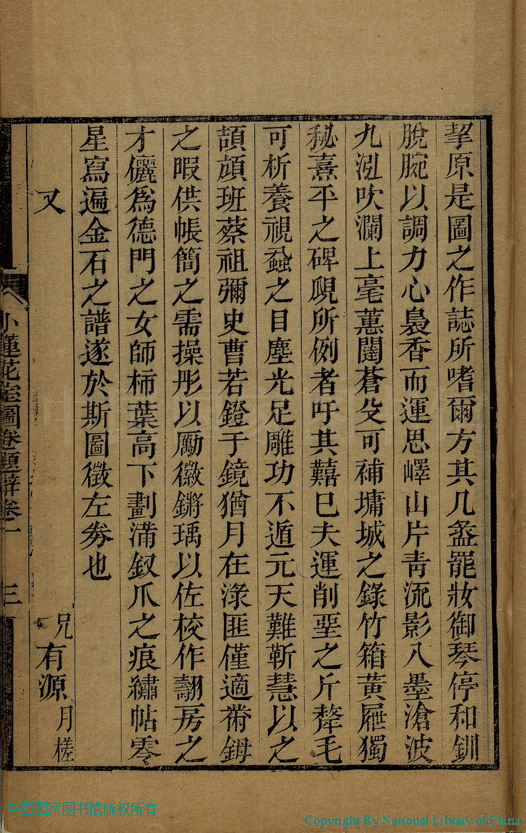 挈原是圖之作誌所嗜爾方其几盌罷妝御琴停和釧
脫腕以調力心裊香而運思嶧山片靑流影入墨滄波
九泓吹瀾上毫蕙闥蒼殳可補墉城之錄竹箱黃屜獨
秘熹平之碑覞所例者吁其囏巳夫運削堊之斤犛毛
可析養視蝨之目塵光足雕功不遁元天難靳慧以之
頡頏班蔡祖彌史曹若鐙于鏡猶月在淥匪僅適褕鋂
之暇供帳簡之需操彤以勵徽鏘瑀以佐校作翿房之
才儷爲德門之女師柹葉高下劃滿釵爪之痕繡帖零
星寫遍金石之譜遂於斯圖徵左券也
又
兄有源月槎
小蓮花室圖卷題辭卷一 三
中国国家图书馆版权所有
Copyright By National Library of China